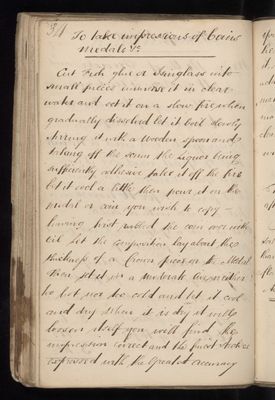 34
To take impressions of Coins
Medals &c
Cut Fish glue or Isinglass into
small pieces immerse it in clear
water and set it on a slow fire when
gradually dissolved let it boil slowly
stirring it with a wooden spoon and
taking off the scum the Liquor being
sufficiently adhesive take it off the fire
let it cool a little then pour it on the
medal or coin you wish to copy
having first rubbed the coin over with
oil Let the composition lay about the
thickness of a Crown piece on the Medal
then set it in a moderate Air neither
too hot nor too cold and let it cool
and dry when it is dry it will
loosen itself you will find the
impression correct and the finest
expressed with the Greatest accuracy